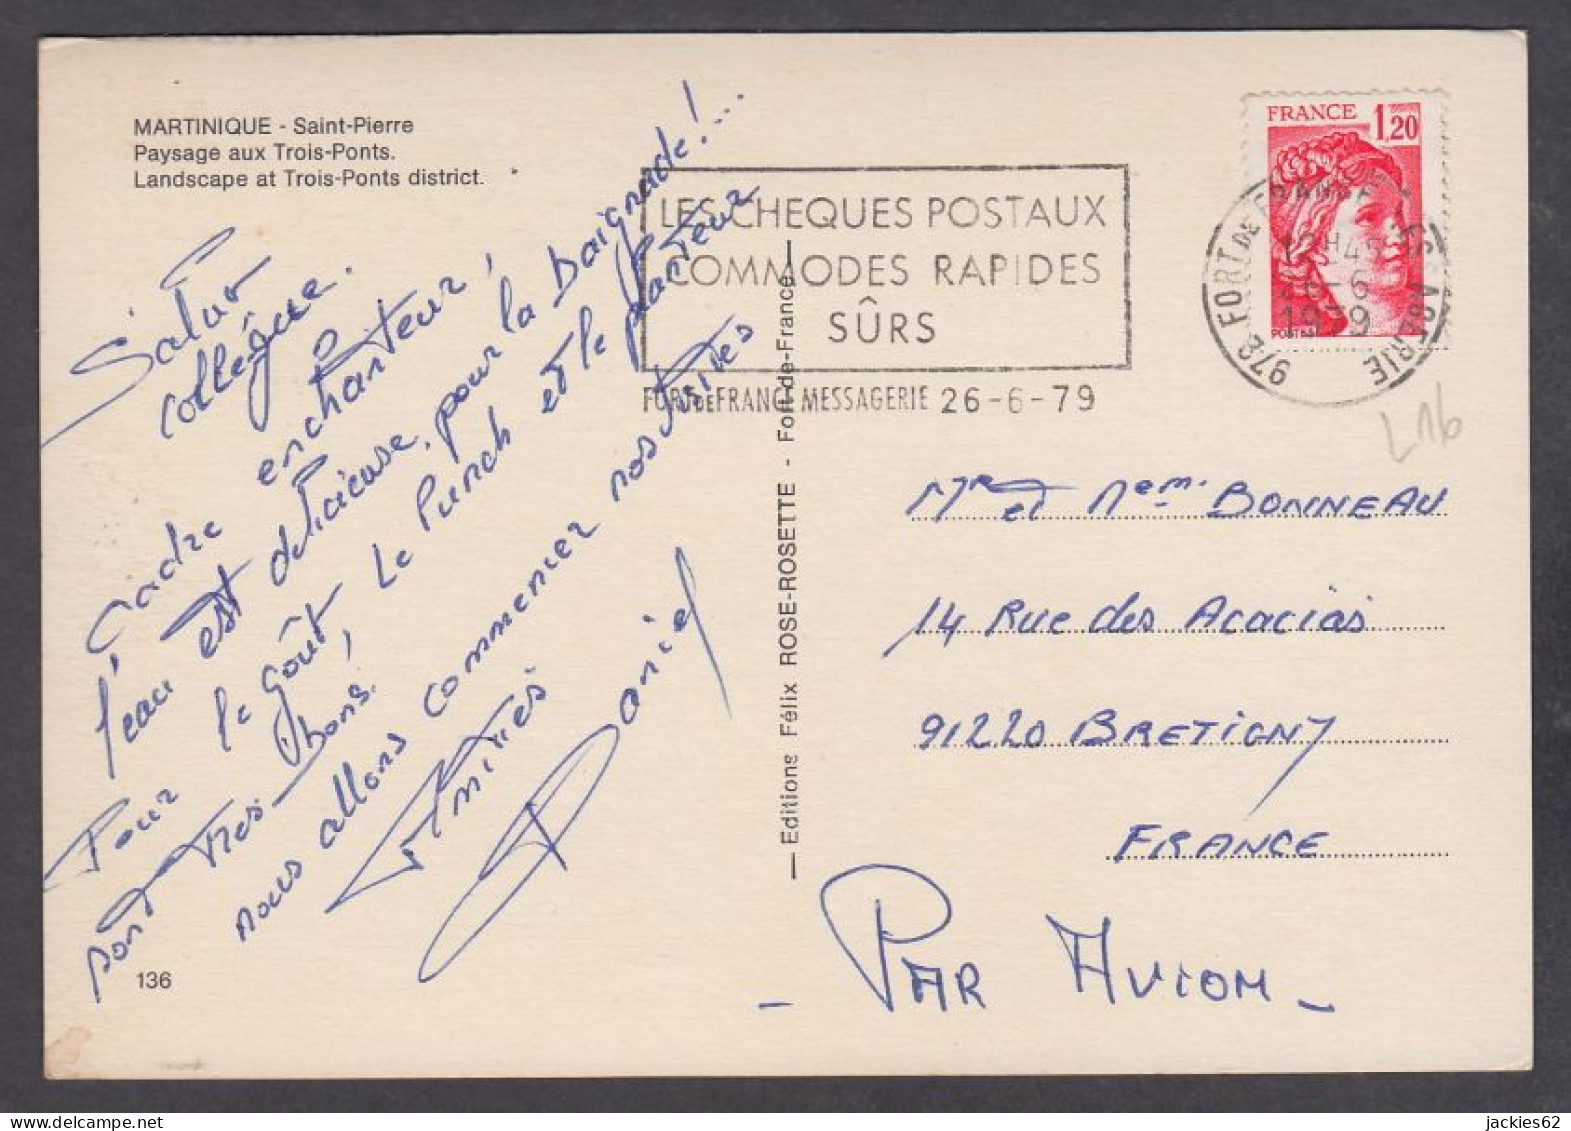 MARTINIQUE - Saint-Pierre
Paysage aux Trois-Ponts.
Landscape at Trois-Ponts district.
Salut
collègue.
Cadre enchanteur,
l'eau est délicieuse, pour la baignade!...
Pour le goût, le Punch et le planteur
sont très bons.
nous allons commencer nos visites
Amitiés
Daniel
136
Editions Félix ROSE-ROSETTE - Fort-de-France
LES CHEQUES POSTAUX
COMMODES RAPIDES
SÛRS
FORT DE FRANCE MESSAGERIE 26-6-79
FRANCE 1,20
972 FORT DE FRANCE
12H45
26-6
1979
L16
Mr et Mem. BONNEAU
14 Rue des Acacias
91220 BRETIGNY
FRANCE
- PAR AVION -
jackies62